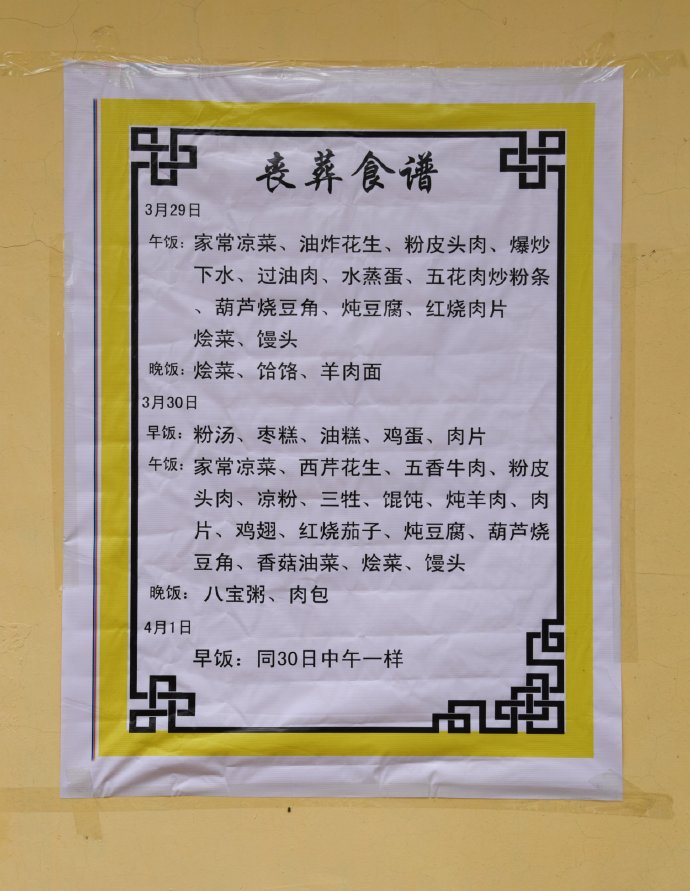 丧葬食谱
3月29日
午饭：家常凉菜、油炸花生、粉皮头肉、爆炒
下水、过油肉、水蒸蛋、五花肉炒粉条
、葫芦烧豆角、炖豆腐、红烧肉片
烩菜、馒头
晚饭：烩菜、饸饹、羊肉面
3月30日
早饭：粉汤、枣糕、油糕、鸡蛋、肉片
午饭：家常凉菜、西芹花生、五香牛肉、粉皮
头肉、凉粉、三牲、馄饨、炖羊肉、肉
片、鸡翅、红烧茄子、炖豆腐、葫芦烧
豆角、香菇油菜、烩菜、馒头
晚饭：八宝粥、肉包
4月1日
早饭：同30日中午一样